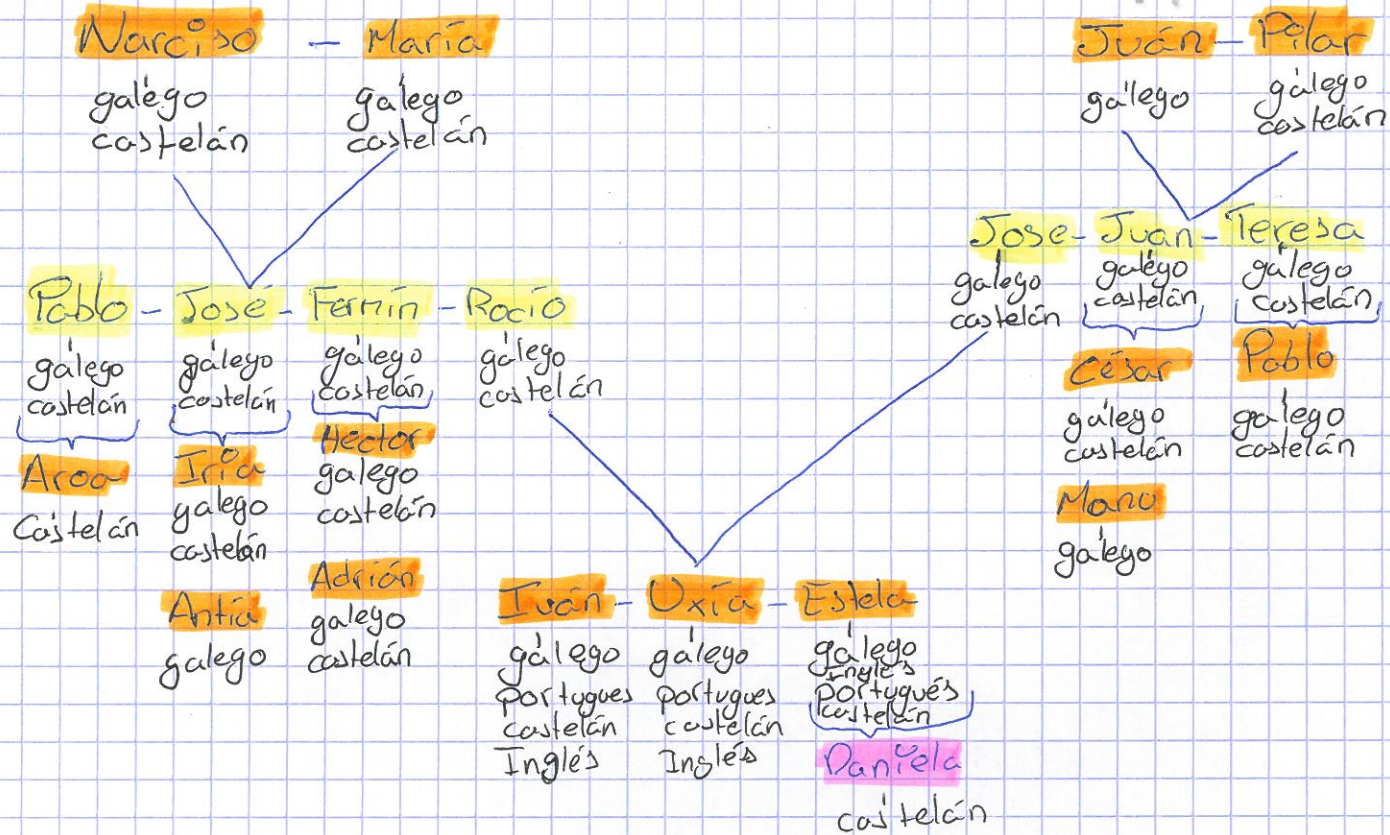 Narciso - María
galego
castelán
galego
castelán
Juán - Pilar
galego
galego
castelán
Pablo - José - Fermín - Rocío
galego
castelán
galego
castelán
galego
castelán
galego
castelán
Aroa
Castelán
Iria
galego
castelán
Antía
galego
Hector
galego
castelán
Adrián
galego
castelán
Jose - Juan - Teresa
galego
castelán
galego
castelán
galego
castelán
César
galego
castelán
Mano
galego
Pablo
galego
castelán
Iván - Uxía - Estela
galego
portugues
castelán
Inglés
galego
portugues
castelán
Inglés
galego
Inglés
portugués
castelán
Daniela
castelán